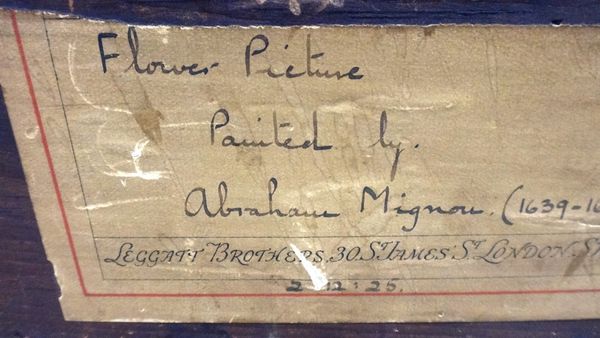 Flower Picture
Painted by.
Abraham Mignon. (1639-16
LEGGATT BROTHERS, 30 ST JAMES' ST LONDON. S
2:12:25.